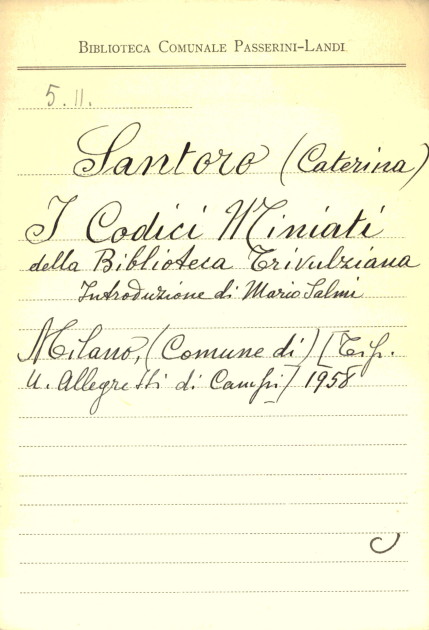 BIBLIOTECA COMUNALE PASSERINI-LANDI
5.11.
Santoro (Caterina)
I Codici Miniati
della Biblioteca Trivulziana
Introduzione di Mario Salmi
Milano, (Comune di) [Tip.
U. Allegretti di Campi] 1958